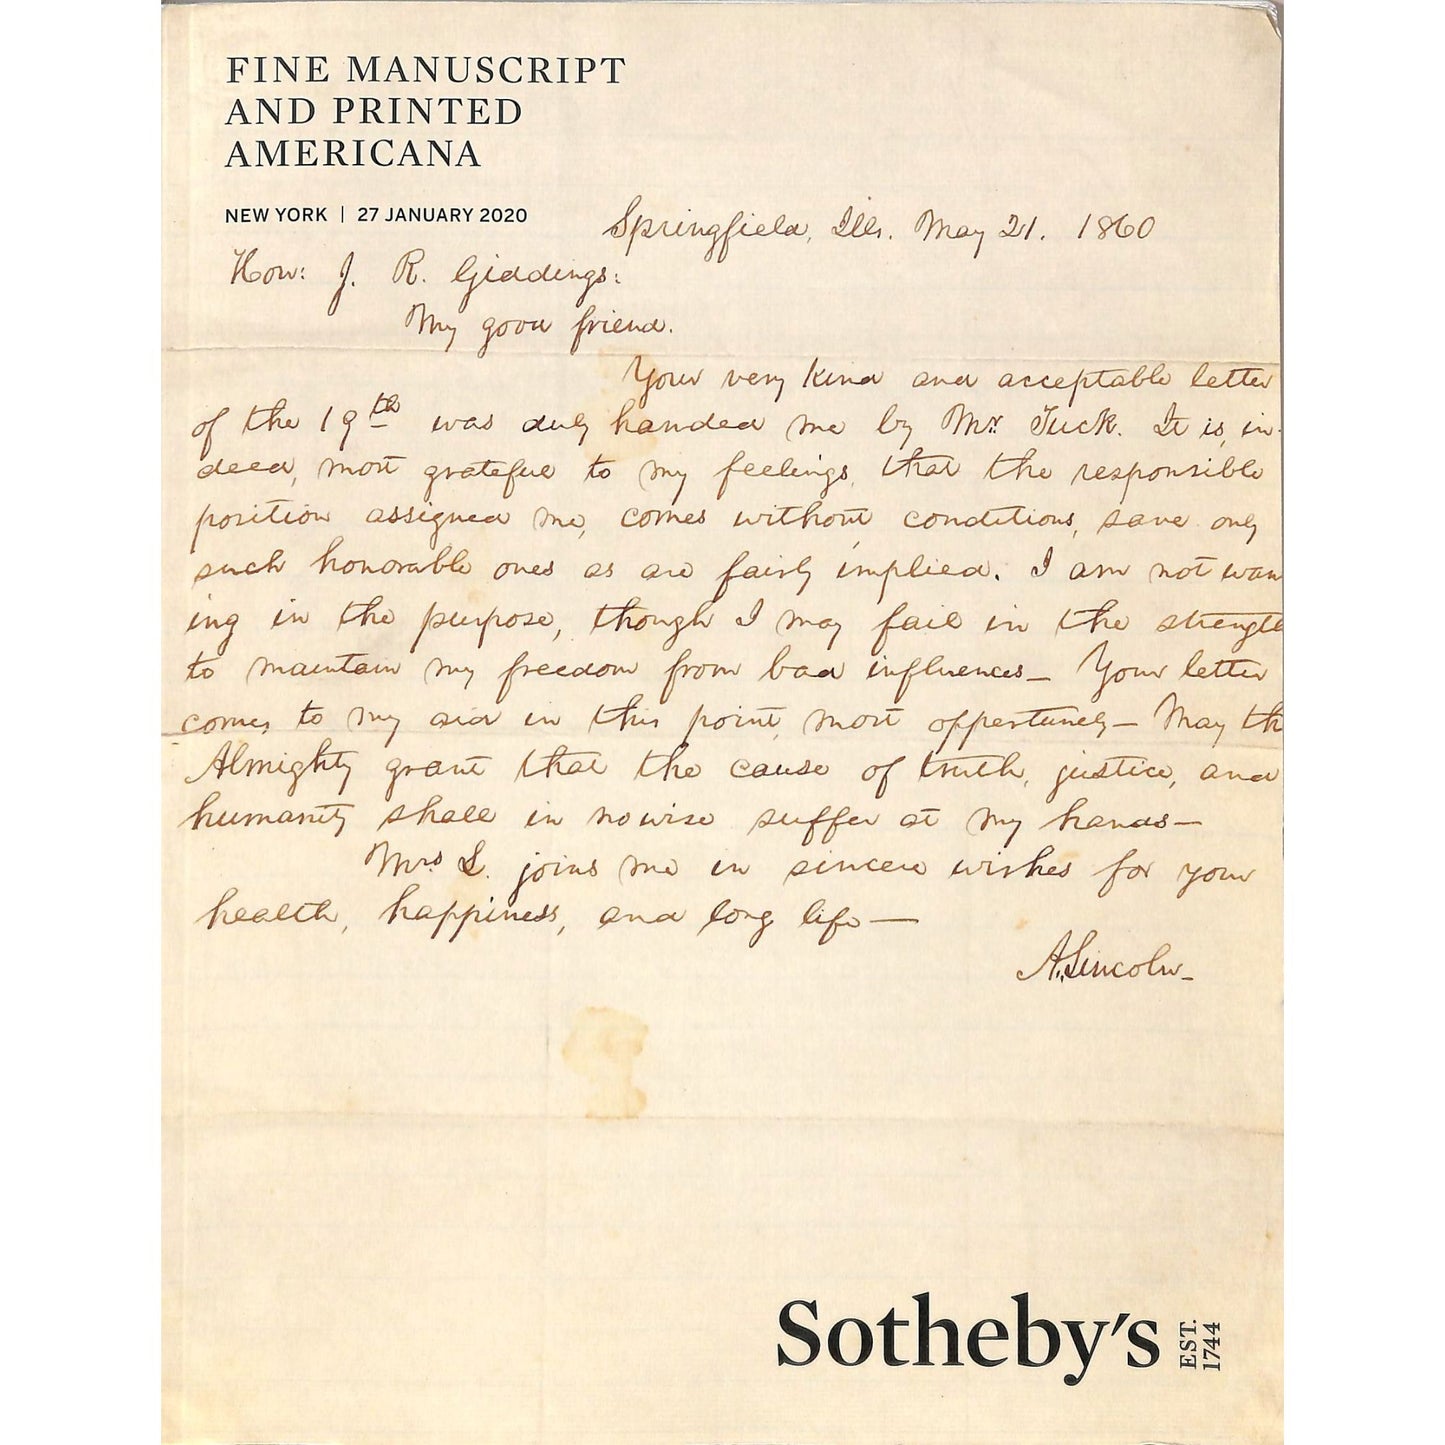 FINE MANUSCRIPT
AND PRINTED
AMERICANA
NEW YORK | 27 JANUARY 2020
Springfield, Ills. May 21. 1860
Hon: J. R. Giddings:
My good friend.
Your very kind and acceptable letter
of the 19th was duly handed me by Mr. Tuck. It is, in-
deed, most grateful to my feelings, that the responsible
position assigned me, comes without conditions, save only
such honorable ones as are fairly implied. I am not wan
ing in the purpose, though I may fail in the strength
to maintain my freedom from bad influences— Your letter
comes to my aid in this point, most opportunely— May th
Almighty grant that the cause of truth, justice, and
humanity, shall in no wise suffer at my hands—
Mrs L. joins me in sincere wishes for your
health, happiness, and long life—
A. Lincoln—
Sotheby's EST.
1744